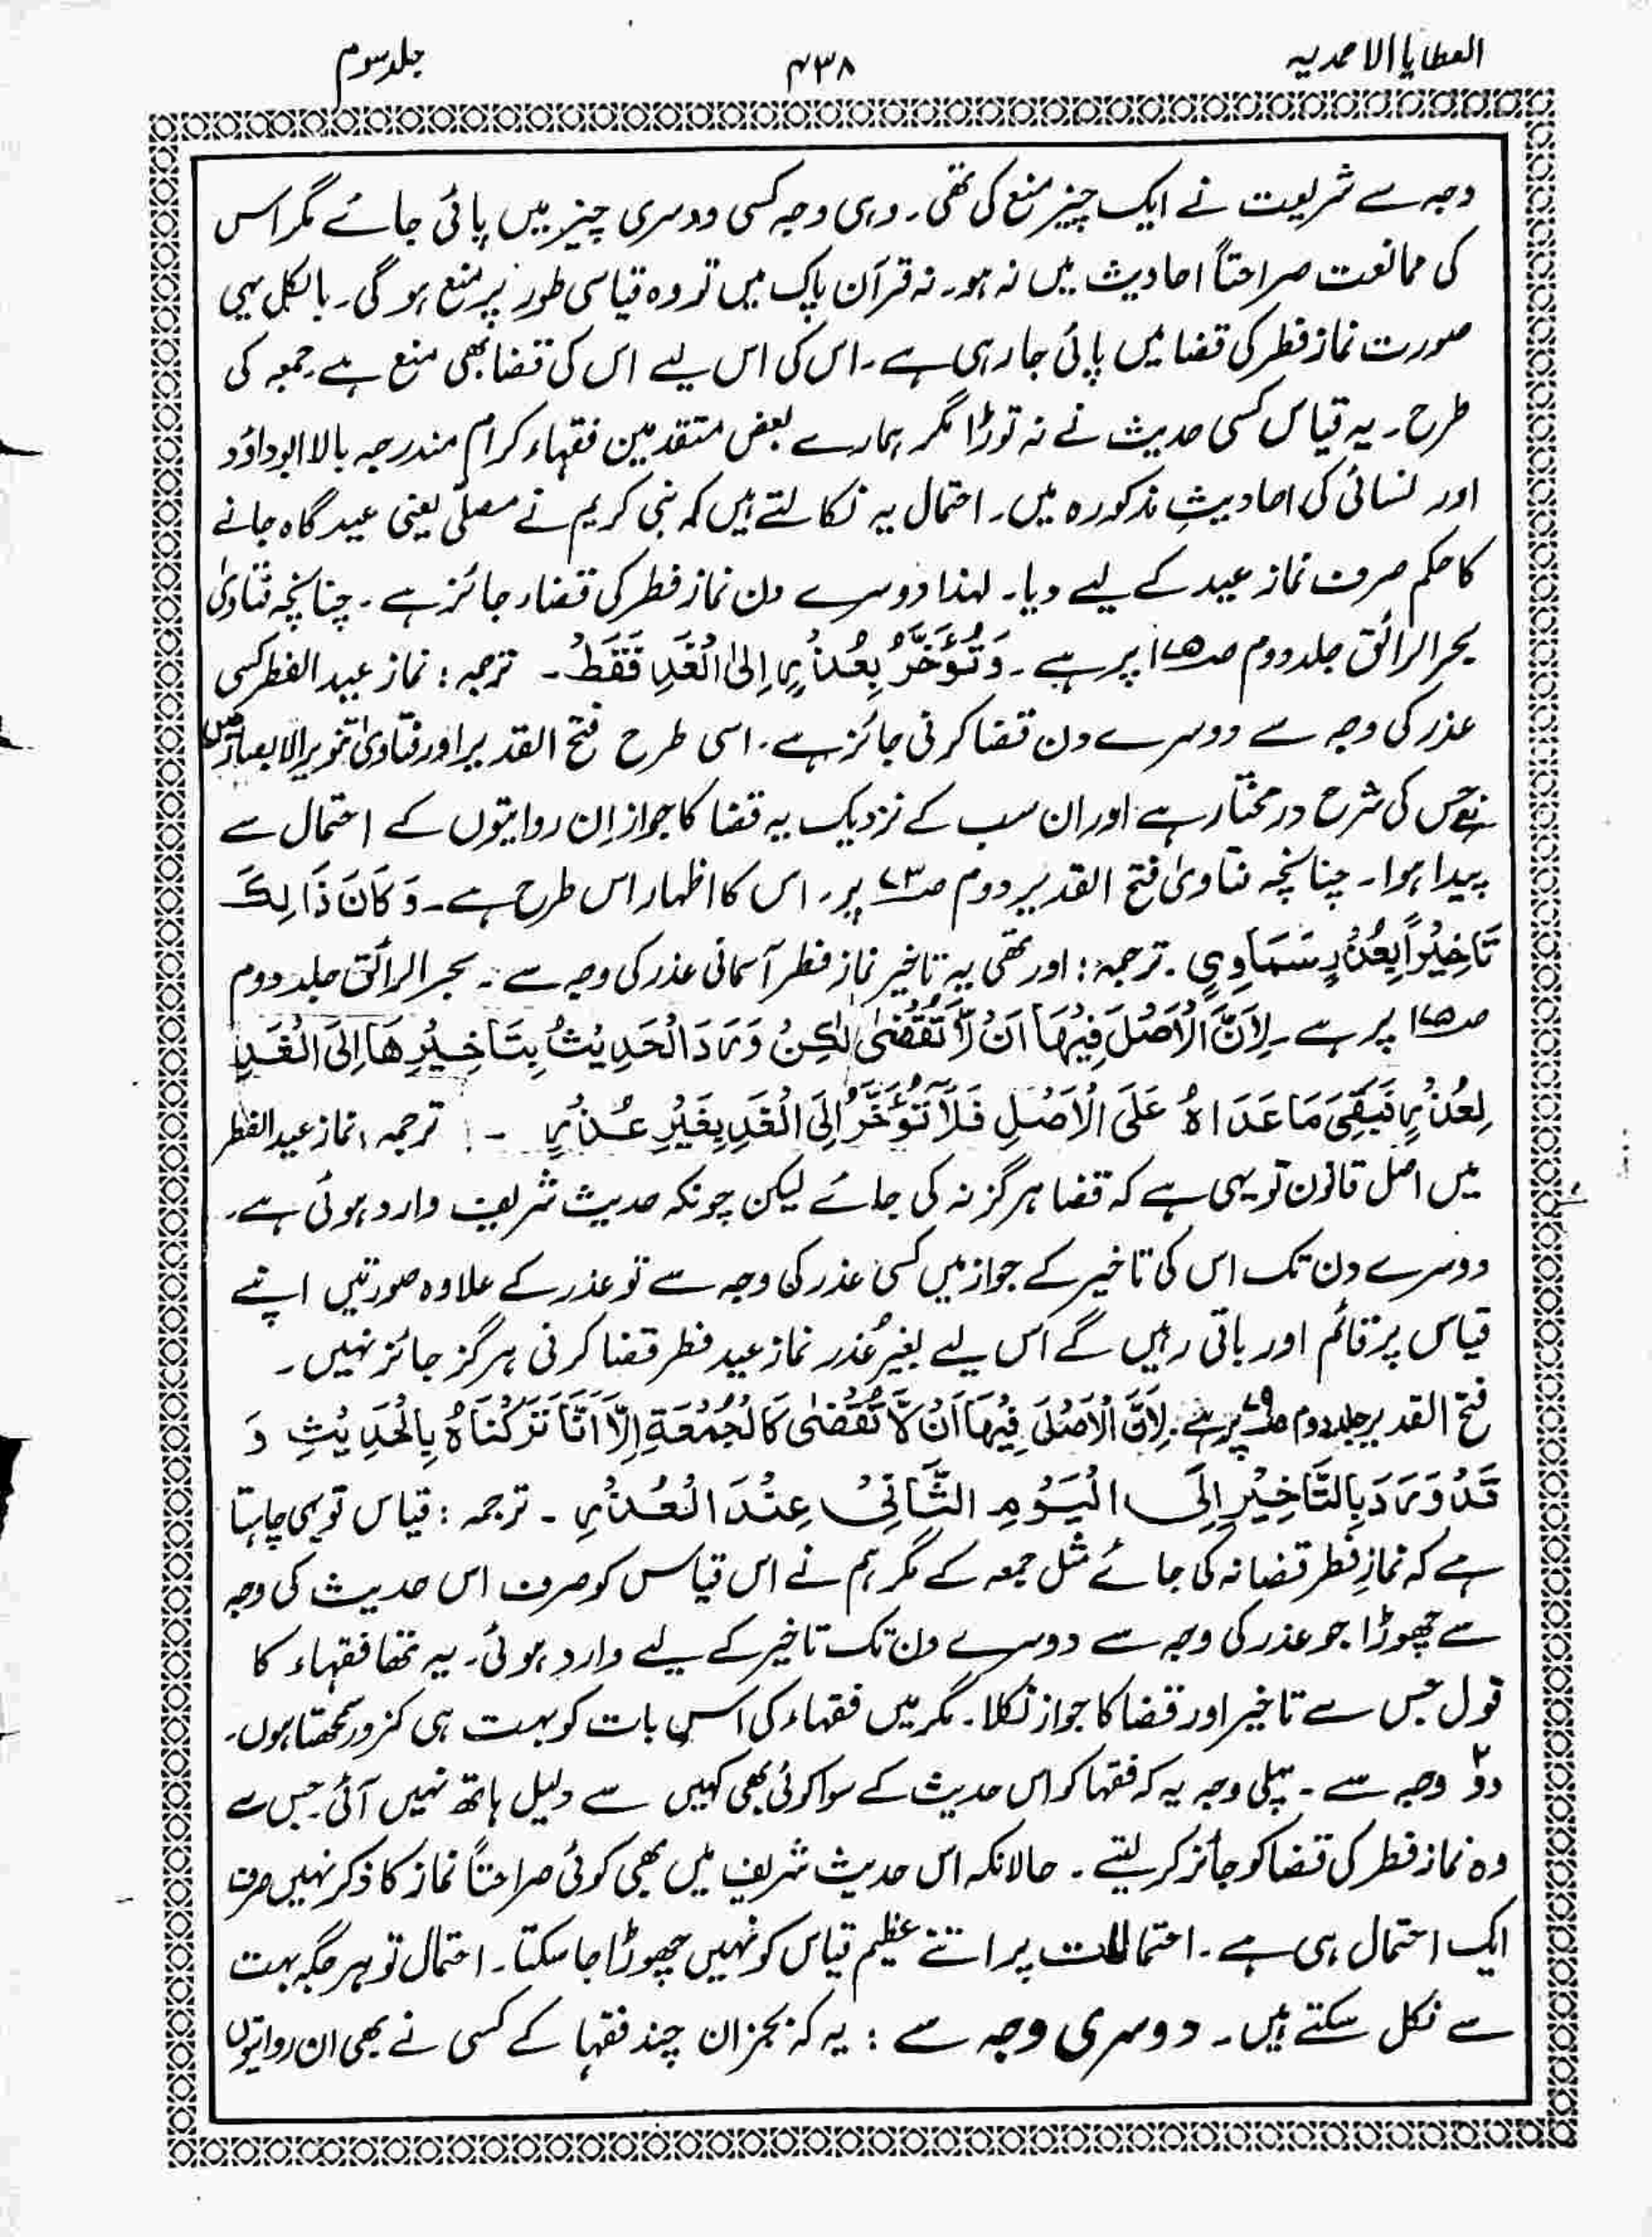 العطایا الاحمدیہ ۴۳۸ جلد سوم
وجہ سے شریعت نے ایک چیز منع کی تھی۔ وہی وجہ کسی دوسری چیز میں پائی جائے مگر اس
کی ممانعت صراحتاً احادیث میں نہ ہو۔ نہ قرآن پاک میں تو وہ قیاسی طور پر منع ہو گی۔ بالکل یہی
صورت نماز فطر کی قضا میں پائی جا رہی ہے۔ اس کی اس لیے اس کی قضا بھی منع ہے جمعہ کی
طرح۔ یہ قیاس کسی حدیث نے نہ توڑا مگر ہمارے بعض متقدمین فقہاء کرام مندرجہ بالا ابوداؤد
اور نسائی کی احادیثِ مذکورہ میں۔ احتمال یہ نکالتے ہیں کہ نبی کریم نے مصلّٰی یعنی عید گاہ جانے
کا حکم صرف نماز عید کے لیے دیا۔ لہذا دوسرے دن نماز فطر کی قضاء جائز ہے۔ چنانچہ فتاویٰ
بحر الرائق جلد دوم صـ۱۷۵ پر ہے۔ وَتُؤَخَّرُ بِعُذْرٍ اِلیَ الْغَدِ فَقَطْ۔ ترجمہ: نماز عید الفطر کسی
عذر کی وجہ سے دوسرے دن قضا کرنی جائز ہے۔ اسی طرح فتح القدیر اور فتاویٰ تنویر الابصار میں
ہے جس کی شرح در مختار ہے اور ان سب کے نزدیک یہ قضا کا جواز اِن روایتوں کے احتمال سے
پیدا ہوا۔ چنانچہ فتاویٰ فتح القدیر دوم صـ۷۳ پر۔ اس کا اظہار اس طرح ہے۔ وَکَانَ ذَالِکَ
تَاخِیْراً بِعُذْرٍ سَمَاوِیٍ۔ ترجمہ: اور تھی یہ تاخیر نماز فطر آسمانی عذر کی وجہ سے۔ بحر الرائق جلد دوم
صـ۱۷۵ پر ہے۔ لِاَنَّ الْاَصْلَ فِیْهَا اَنْ لَّا تُقْضٰی لٰکِنْ وَرَدَ الْحَدِیْثُ بِتَاخِیْرِهَا اِلَی الْغَدِ
لِعُذْرٍ فَبَقِیَ مَا عَدَاہُ عَلَی الْاَصْلِ فَلَا تُؤَخَّرُ اِلَی الْغَدِ بِغَیْرِ عُذْرٍ ۔ ترجمہ: نماز عید الفطر
میں اصل قانون تو یہی ہے کہ قضا ہرگز نہ کی جائے لیکن چونکہ حدیث شریف وارد ہوئی ہے۔
دوسرے دن تک اس کی تاخیر کے جواز میں کسی عذر کی وجہ سے تو عذر کے علاوہ صورتیں اپنے
قیاس پر قائم اور باقی رہیں گے اس لیے بغیر عُذر نماز عید فطر قضا کرنی ہرگز جائز نہیں۔
فتح القدیر جلد دوم صـ۷۹ پر ہے۔ لِاَنَّ الْاَصْلَ فِیْهَا اَنْ لَّا تُقْضٰی کَالْجُمُعَةِ اِلَّا اَنَّا تَرَکْنَاہُ بِالْحَدِیْثِ وَ
قَدْ وَرَدَ بِالتَّاخِیْرِ اِلَی الْیَوْمِ الثَّانِیْ عِنْدَ الْعُذْرِ ۔ ترجمہ: قیاس تو یہی چاہتا
ہے کہ نمازِ فطر قضا نہ کی جائے مثل جمعہ کے مگر ہم نے اس قیاس کو صرف اس حدیث کی وجہ
سے چھوڑا جو عذر کی وجہ سے دوسرے دن تک تاخیر کے لیے وارد ہوئی۔ یہ تھا فقہاء کا
قول جس سے تاخیر اور قضا کا جواز نکلا۔ مگر میں فقہاء کی اس بات کو بہت ہی کمزور سمجھتا ہوں۔
دو۲ وجہ سے۔ پہلی وجہ یہ کہ فقہا کو اس حدیث کے سوا کوئی بھی کہیں سے دلیل ہاتھ نہیں آئی۔ جس سے
وہ نماز فطر کی قضا کو جائز کر لیتے۔ حالانکہ اس حدیث شریف میں بھی کوئی صراحتاً نماز کا ذکر نہیں صرف
ایک احتمال ہی ہے۔ احتمالات پر اتنے عظیم قیاس کو نہیں چھوڑا جا سکتا۔ احتمال تو ہر جگہ بہت
سے نکل سکتے ہیں۔ دوسری وجہ سے: یہ کہ بجز ان چند فقہا کے کسی نے بھی ان روایتوں